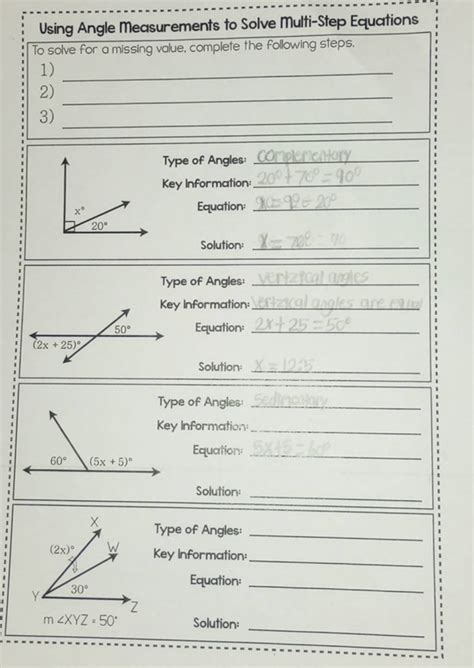 Using Angle Measurements to Solve Multi-Step Equations
To solve for a missing value, complete the following steps.
1)
2)
3)
x°
20°
Type of Angles: complementary
Key Information: 20° + 70° = 90°
Equation:
Solution: x = 70°
50°
(2x + 25)°
Type of Angles: vertzical angles
Key Information: Vertzical angles are equal
Equation: 2x + 25 = 50°
Solution: x = 12.5
60°
(5x + 5)°
Type of Angles:
Key Information:
Equation: 5x+5 = 60°
Solution:
X
(2x)°
W
30°
Y
Z
m ∠XYZ = 50°
Type of Angles:
Key Information:
Equation:
Solution: